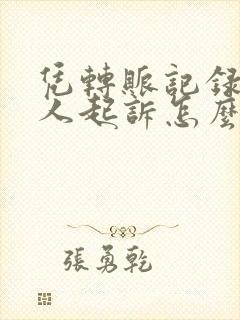 凭轉賬記録
人起訴怎麼
張勇乾